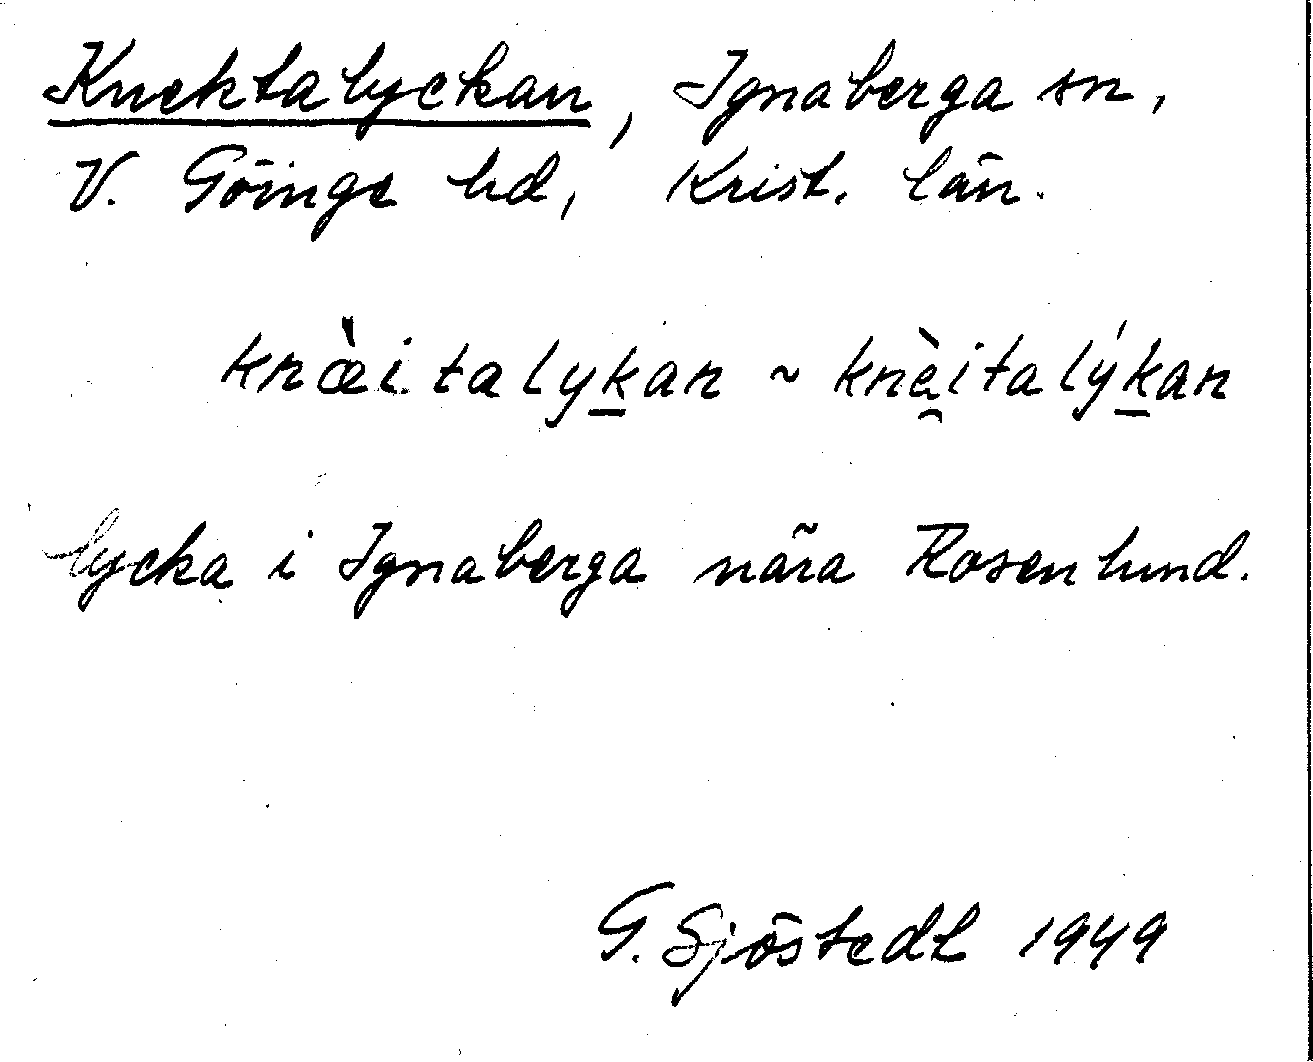 Knektalyckan, Ignaberga sn,
V. Göinge hd, Krist. län.
knæ̀italy̱kan ~ knà̯italýḵan
lycka i Ignaberga nära Rosenlund.
G. Sjöstedt 1949